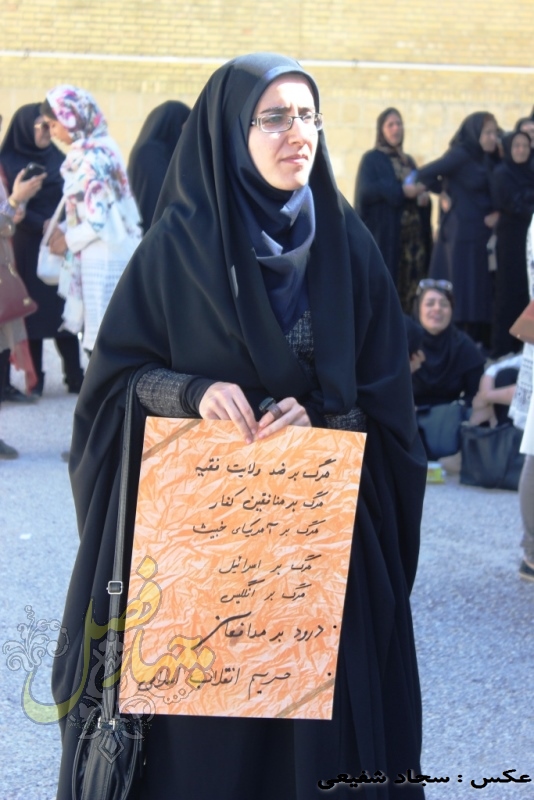 مرگ بر ضد ولایت فقیه
مرگ بر منافقین کفار
مرگ بر آمریکای خبیث
مرگ بر اسرائیل
مرگ بر انگلیس
درود بر مدافعان
حریم انقلاب اسلامی
چهار فصل
عکس : سجاد شفیعی